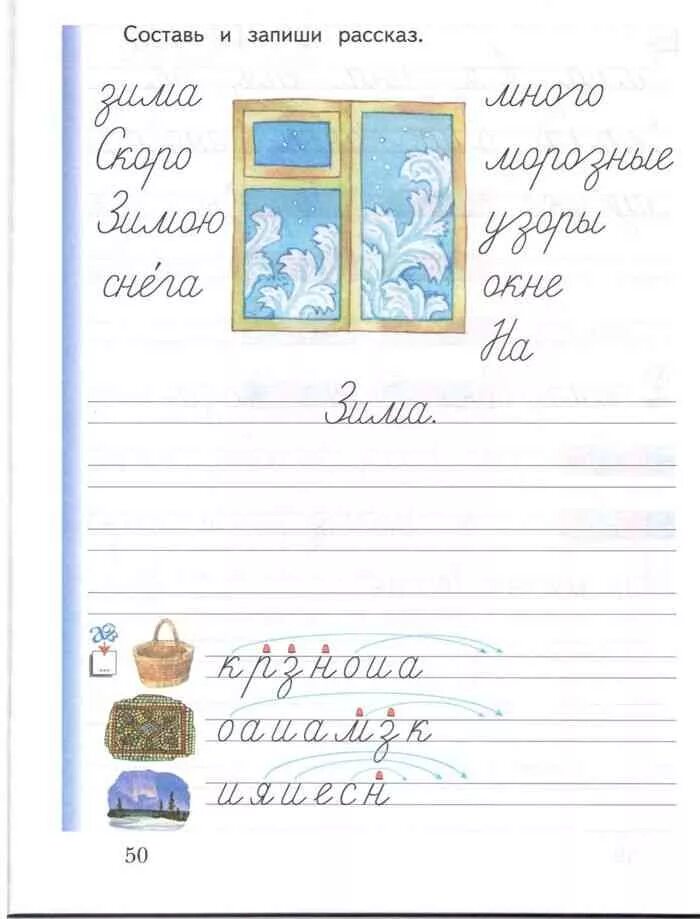 Составь и запиши рассказ.
зима
Скоро
Зимою
сне́га
много
морозные
узоры
окне
На
Зима.
...
крзноиа
оаиамзк
ияиесн
50